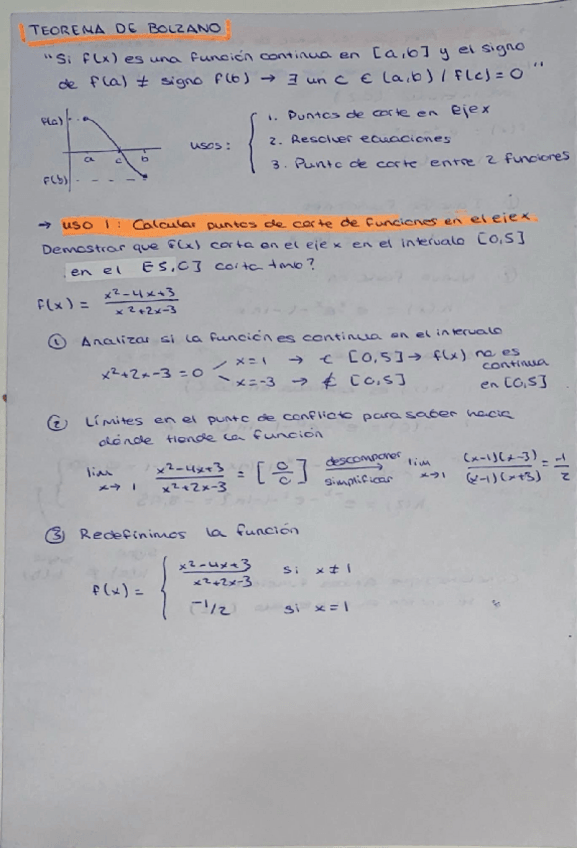 TEOREMA DE BOLZANO
"Si f(x) es una función continua en [a,b] y el signo
de f(a) ≠ signo f(b) → ∃ un c ∈ (a,b) / f(c) = 0"
f(a)
a c b
f(b)
usos:
1. Puntos de corte en eje x
2. Resolver ecuaciones
3. Punto de corte entre 2 funciones
→ USO 1: Calcular puntos de corte de funciones en el eje x
Demostrar que f(x) corta en el eje x en el intervalo [0,5]
en el corta
f(x) = (x²-4x+3)/(x²+2x-3)
① Analizar si la función es continua en el intervalo
x²+2x-3=0
x=1 → ∈ [0,5] → f(x) no es continua en [0,5]
x=-3 → ∉ [0,5]
② Límites en el punto de conflicto para saber hacia
dónde tiende la función
lim x→1 (x²-4x+3)/(x²+2x-3) = [0/0] descomponer simplificar → lim x→1 ((x-1)(x-3))/((x-1)(x+3)) = -1/2
③ Redefinimos la función
f(x) = { (x²-4x+3)/(x²+2x-3) si x ≠ 1
-1/2 si x=1